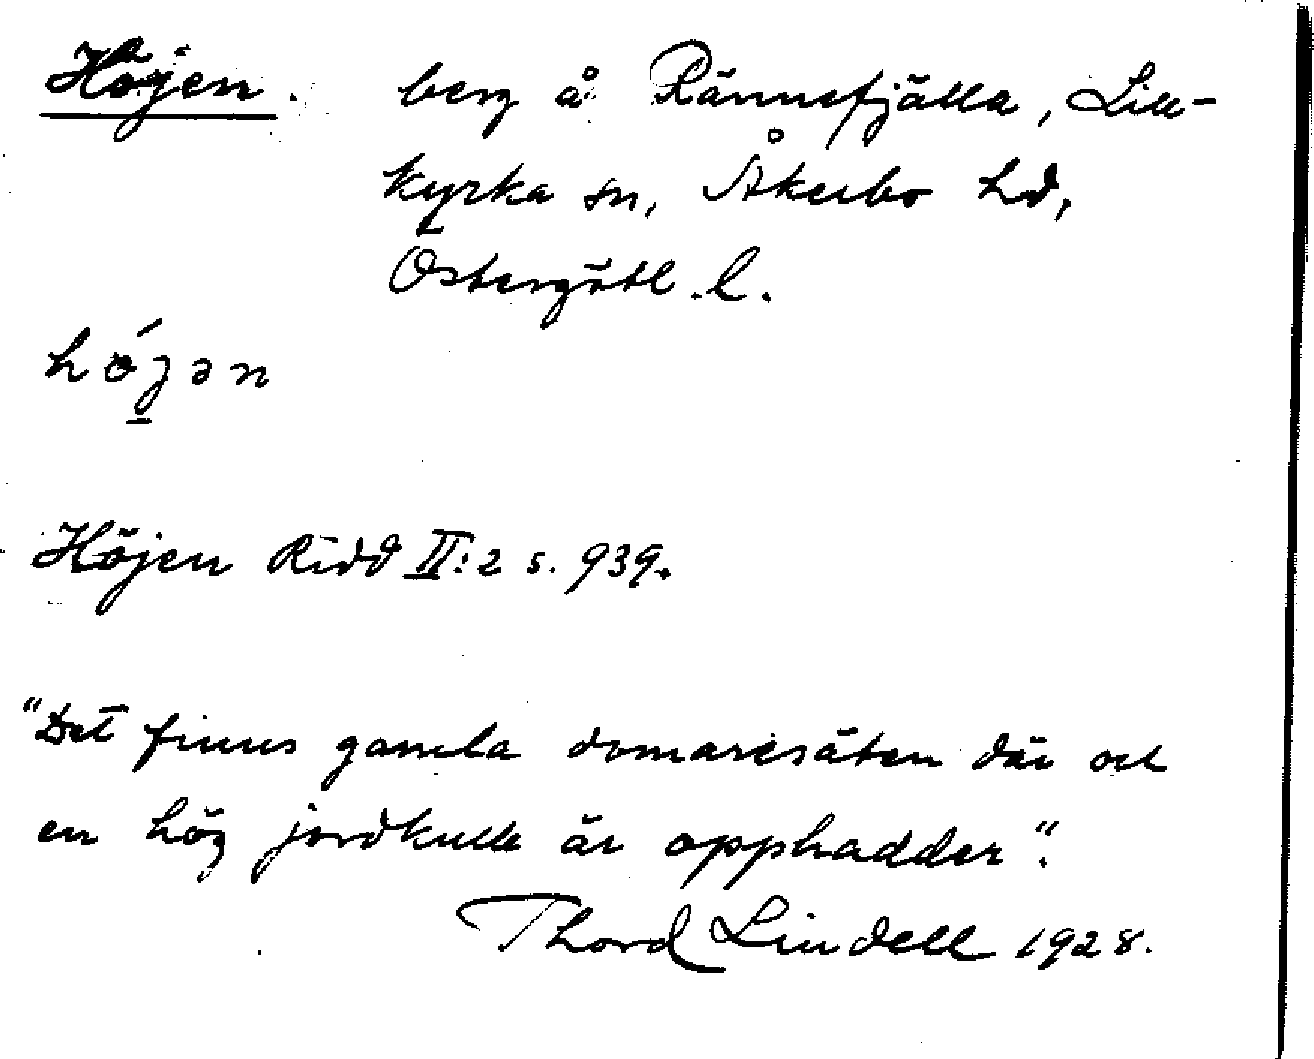 Höjen. berg å Rännefjälla, Lill-
kyrka sn, Åkerbo hd,
Östergötl. l.
hö́jən
Höjen Ridd II:2 s. 939.
"Det finns gamla domaresäten där och
en hög jordkulle är opphadder".
Thord Lindell 1928.